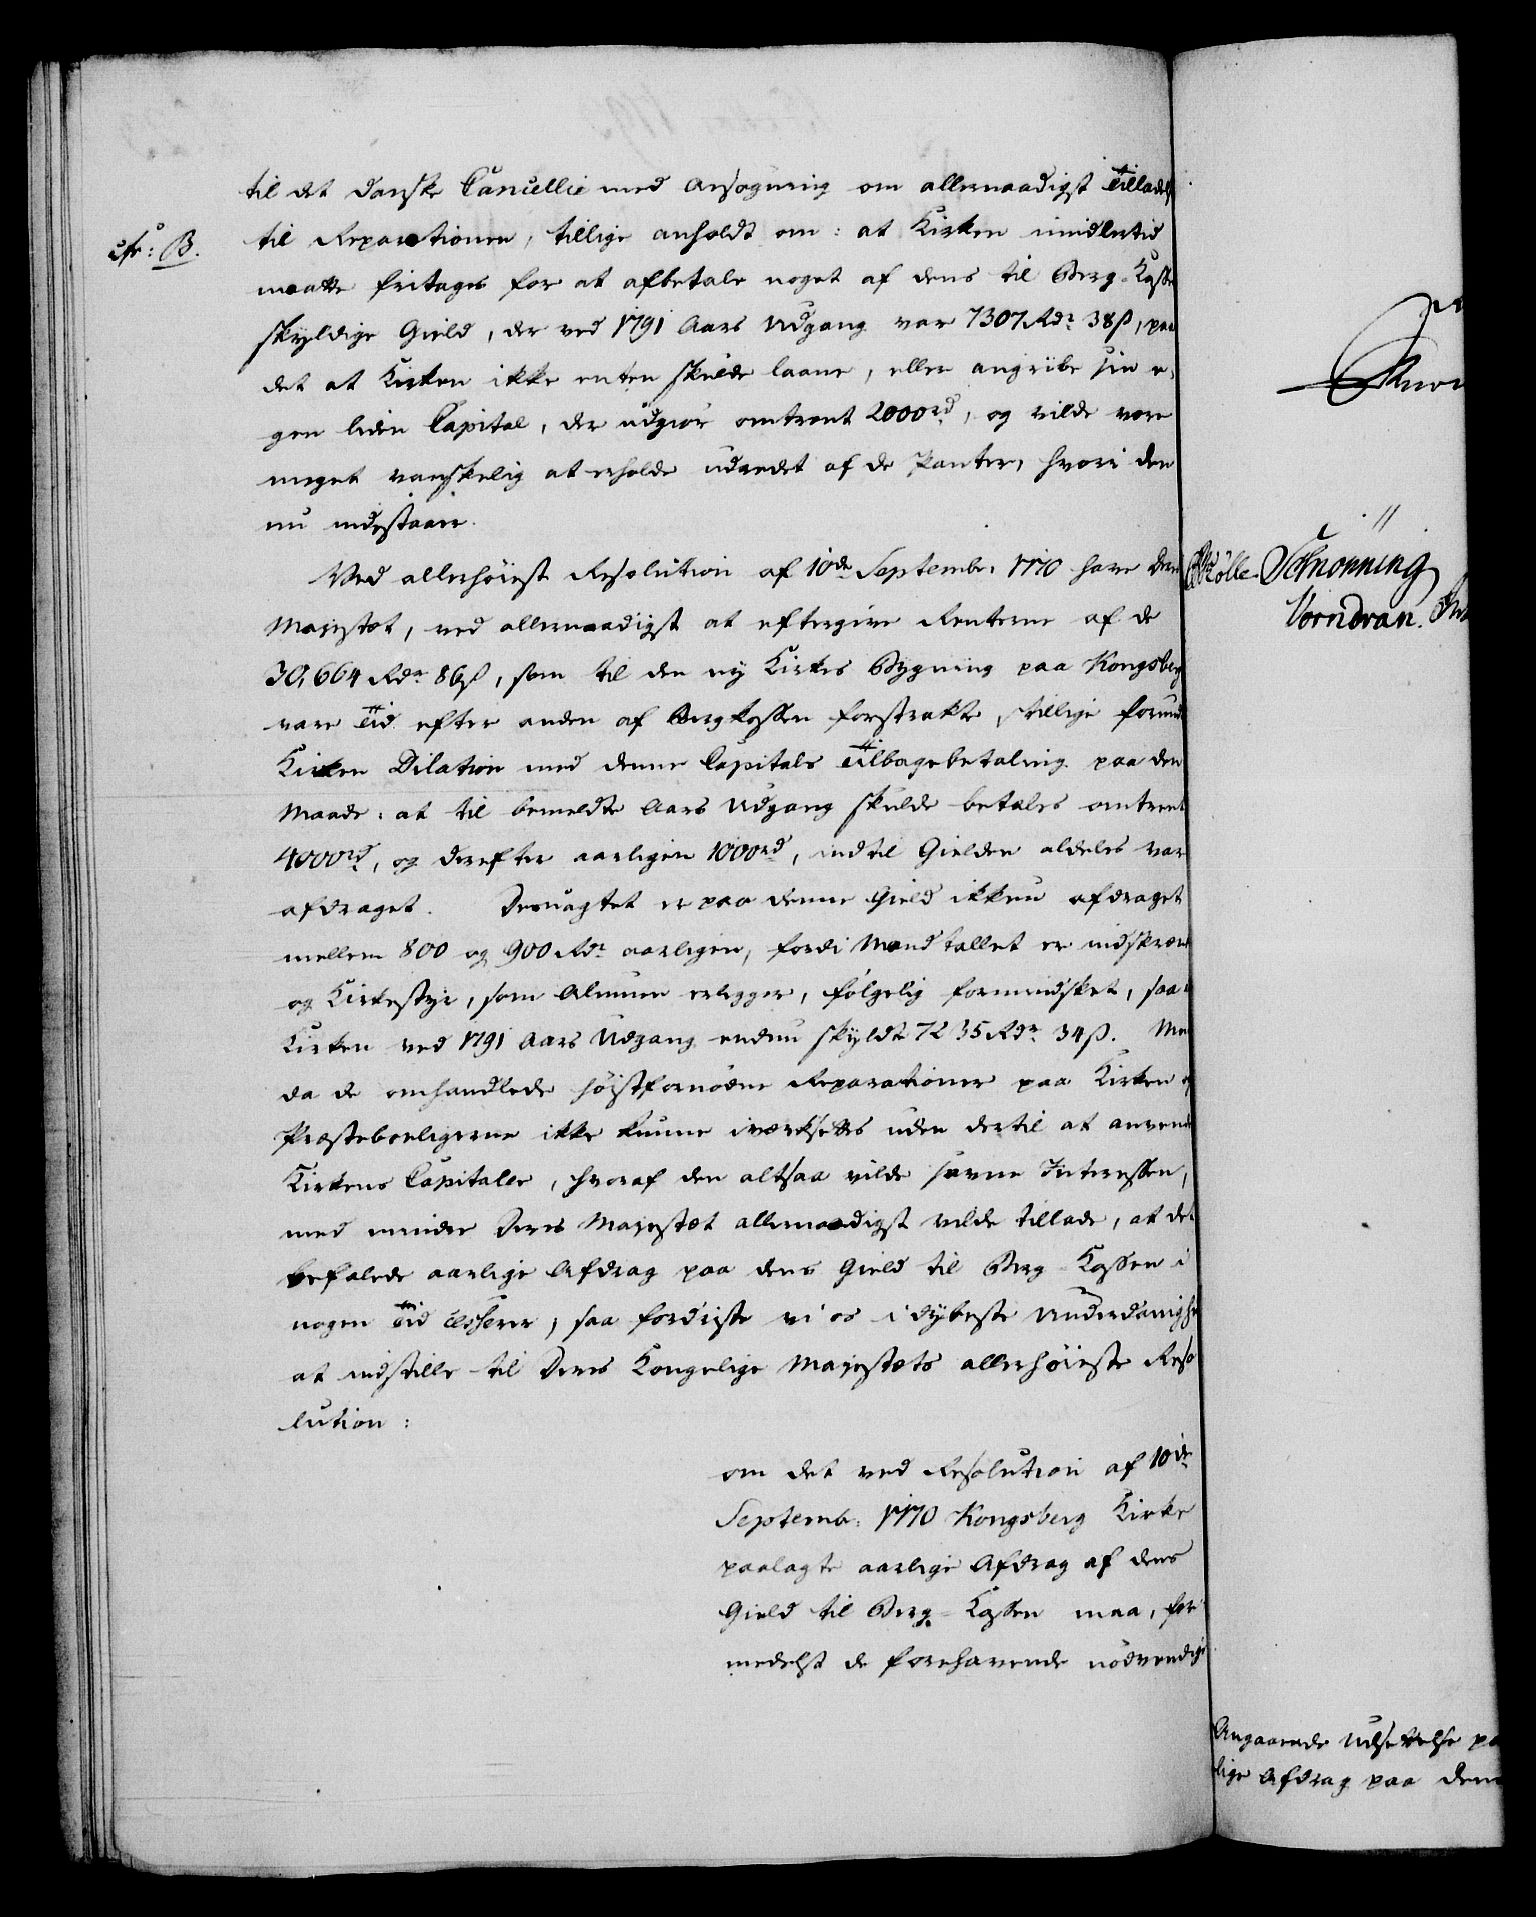 til det danske Cancellie med Ansøgning om allernaadigst Tilladels
cfr: B.
til Reparationen, tillige anholdt om: at Kirken imidlertid
maatte fritages for at afbetale noget af dens til Berg-Kasse
skyldige Gield, der ved 1791 Aars Udgang var 7307 Rdr 38 ß, paa
det at Kirken ikke enten skulde laane, eller angribe sin e-
gen liden Capital, der udgiør omtrent 2000 rd, og vilde være
meget vanskelig at erholde udredet af de Panter, hvori den
nu indestaaer.
Ved allerhøieste Resolution af 10de Septembr: 1770 have Deres
Majestæt, ved allernaadigst at eftergive Renterne af de
30,664 Rdr 86 ß, som til den ny Kirkes Bygning paa Kongsberg
vare Tid efter anden af Bergkassen forstrakte, tillige forundt
Kirken Dilation med denne Capitals Tilbagebetaling paa den
Maade: at til bemeldte Aars Udgang skulde betales omtrent
4000 rd, og derefter aarligen 1000 rd, indtil Gielden aldeles var
afdraget. Desuagtet er paa denne Gield ikkun afdraget
mellem 800 og 900 Rdr aarligen, fordi Mandtallet er indskrænk
og Kirkestyr, som Almuen erlegger, følgelig formindsket, saa
Kirken ved 1791 Aars Udgang endnu skyldte 7235 Rdr 34 ß. Men
da de omhandlede høistfornødne Reparationer paa Kirken og
Præsteboeligerne ikke kunne iværksættes uden dertil at anvende
Kirkens Capitaler, hvoraf den altsaa vilde savne Interessen,
med mindre Deres Majestæt allernaadigst vilde tillade, at det
befalede aarlige Afdrag paa dens Gield til Berg-Kassen i
nogen Tid cesserer, saa fordriste vi os i dybeste Underdanighe
at indstille til Deres Kongelige Majestæts allerhøieste Reso
lution:
om det ved Resolution af 10de
Septemb: 1770 Kongsberg Kirke
paalagte aarlige Afdrag af dens
Gield til Berg-Kassen maa, for-
medelst de forehavende nødvendige
Schnonning
Vorndran.
Angaaende Udsættelse pa
lige Afdrag paa den